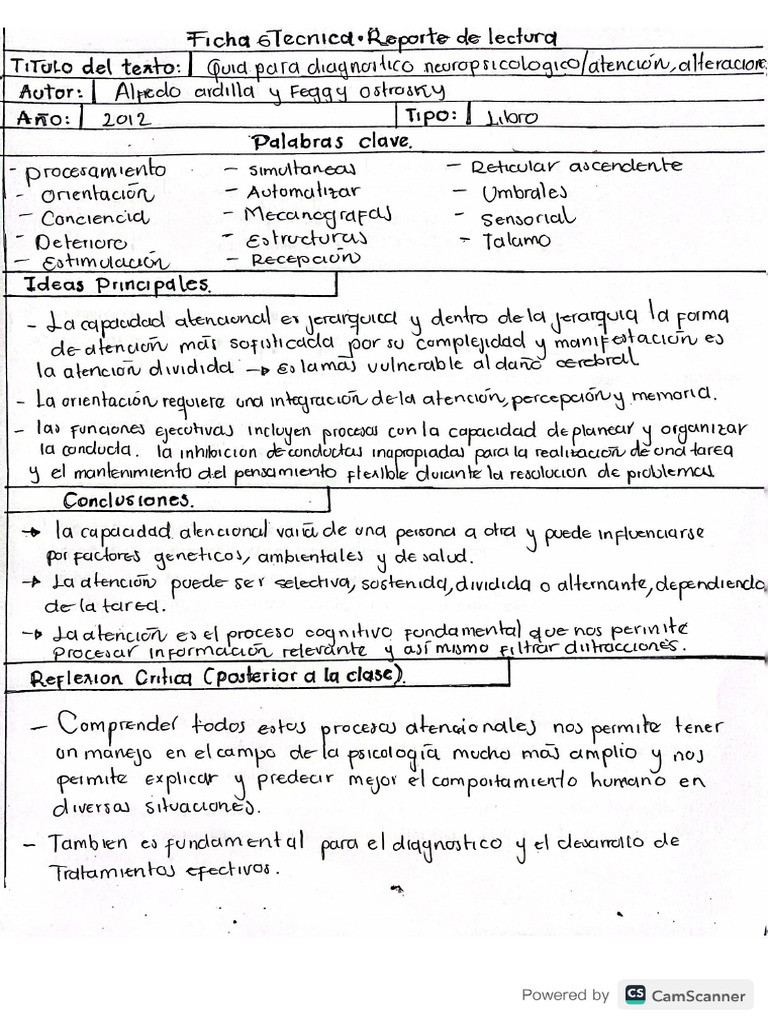 Ficha Tecnica • Reporte de lectura
TíTULO del texto: Guia para diagnostico neuropsicologico/atención, alteracione
Autor: Alfredo ardilla y Feggy Ostrosky
Año: 2012 Tipo: Libro
Palabras clave.
- procesamiento - simultaneas - Reticular ascendente
- Orientación - Automatizar - Umbrales
- Conciencia - Mecanografas - Sensorial
- Deterioro - Estructuras - Talamo
- Estimulación - Recepción
Ideas Principales.
- La capacidad atencional es jerarquica y dentro de la jerarquia la forma
de atención más sofisticada por su complejidad y manifestación es
la atención dividida → es la más vulnerable al daño cerebral
- La orientación requiere una integración de la atención, percepción y memoria.
- las funciones ejecutivas incluyen procesos con la capacidad de planear y organizar
la conducta. la inhibicion de conductas inapropiadas para la realización de una tarea
y el mantenimiento del pensamiento flexible durante la resolucion de problemas
Conclusiones.
→ la capacidad atencional varia de una persona a otra y puede influenciarse
por factores geneticos, ambientales y de salud.
→ La atención puede ser selectiva, sostenida, dividida o alternante, dependiendo
de la tarea.
→ La atención es el proceso cognitivo fundamental que nos permite
procesar información relevante y asi mismo filtrar distracciones.
Reflexion Critica (posterior a la clase).
- Comprender todos estos procesos atencionales nos permite tener
un manejo en el campo de la psicología mucho más amplio y nos
permite explicar y predecir mejor el comportamiento humano en
diversas situaciones.
- Tambien es fundamental para el diagnostico y el desarrollo de
Tratamientos efectivos.
Powered by CS CamScanner